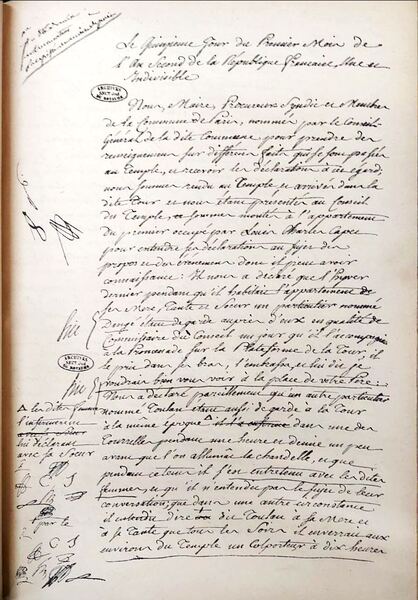 Le Quinzieme Jour du Premier Mois de
l'An Second de la République française, Une et
Indivisible
ARCHIVES
Nous, Maire, Procureur Syndic et Membres
de la Commune de Paris, nommés par le Conseil
Général de la dite Commune pour prendre des
renseignemens sur différens faits qui se sont passés
au Temple, et recevoir les déclarations à cet égard,
nous sommes rendu au Temple et arrivés dans la
dite Tour et nous étant présentés au Conseil
du Temple, sommes montés à l'appartement
du premier occupé par Louis Charles Capet
pour entendre ses déclarations au sujet des
propos et des évenemens dont il peut avoir
connaissance: Il nous a déclaré que l'hyver
dernier pendant qu'il habitait l'appartement de
ses Mere, Tante et Soeur un particulier nommé
Dangé étant de garde auprès d'eux en qualité de
Commissaire du Conseil un jour qu'il l'accompagna
à la Promenade sur la Plateforme de la Tour, il
le prit dans ses bras, l'embrassa et lui dit je
voudrais bien vous voir à la place de votre Pere
ARCHIVES
Nous a déclaré pareillement qu'un autre particulier
nommé Toulan étant aussi de garde à la Tour
à la même époque dans une des
Tourelles pendant une heure et demie un peu
avant que l'on allumât la chandelle, et que
pendant ce tems il s'est entretenu avec les dites
femmes et qu'il n'entendit pas le sujet de leur
conversation; que dans une autre circonstance
il entendit dire dit Toulan à sa Mere et
à sa Tante que tous les Soirs il enverrait aux
environs du Temple un Colporteur à dix heures
les dites femmes
l'enfermerent
lui déclarant
avec sa Soeur